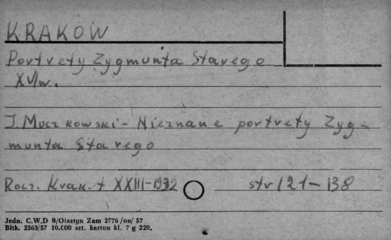 KRAKÓW
Portrety Zygmunta Starego
XVI w.
J. Muczkowski - Nieznane portrety Zyg-
munta Starego
Rocz. Krak. t XXIII-1932 str 121-138
Jedn. C.W.D 8/Olsztyn Zam 2776/on/57
Błtk. 2563/57 10.000 szt. karton kl. 7 g 220.